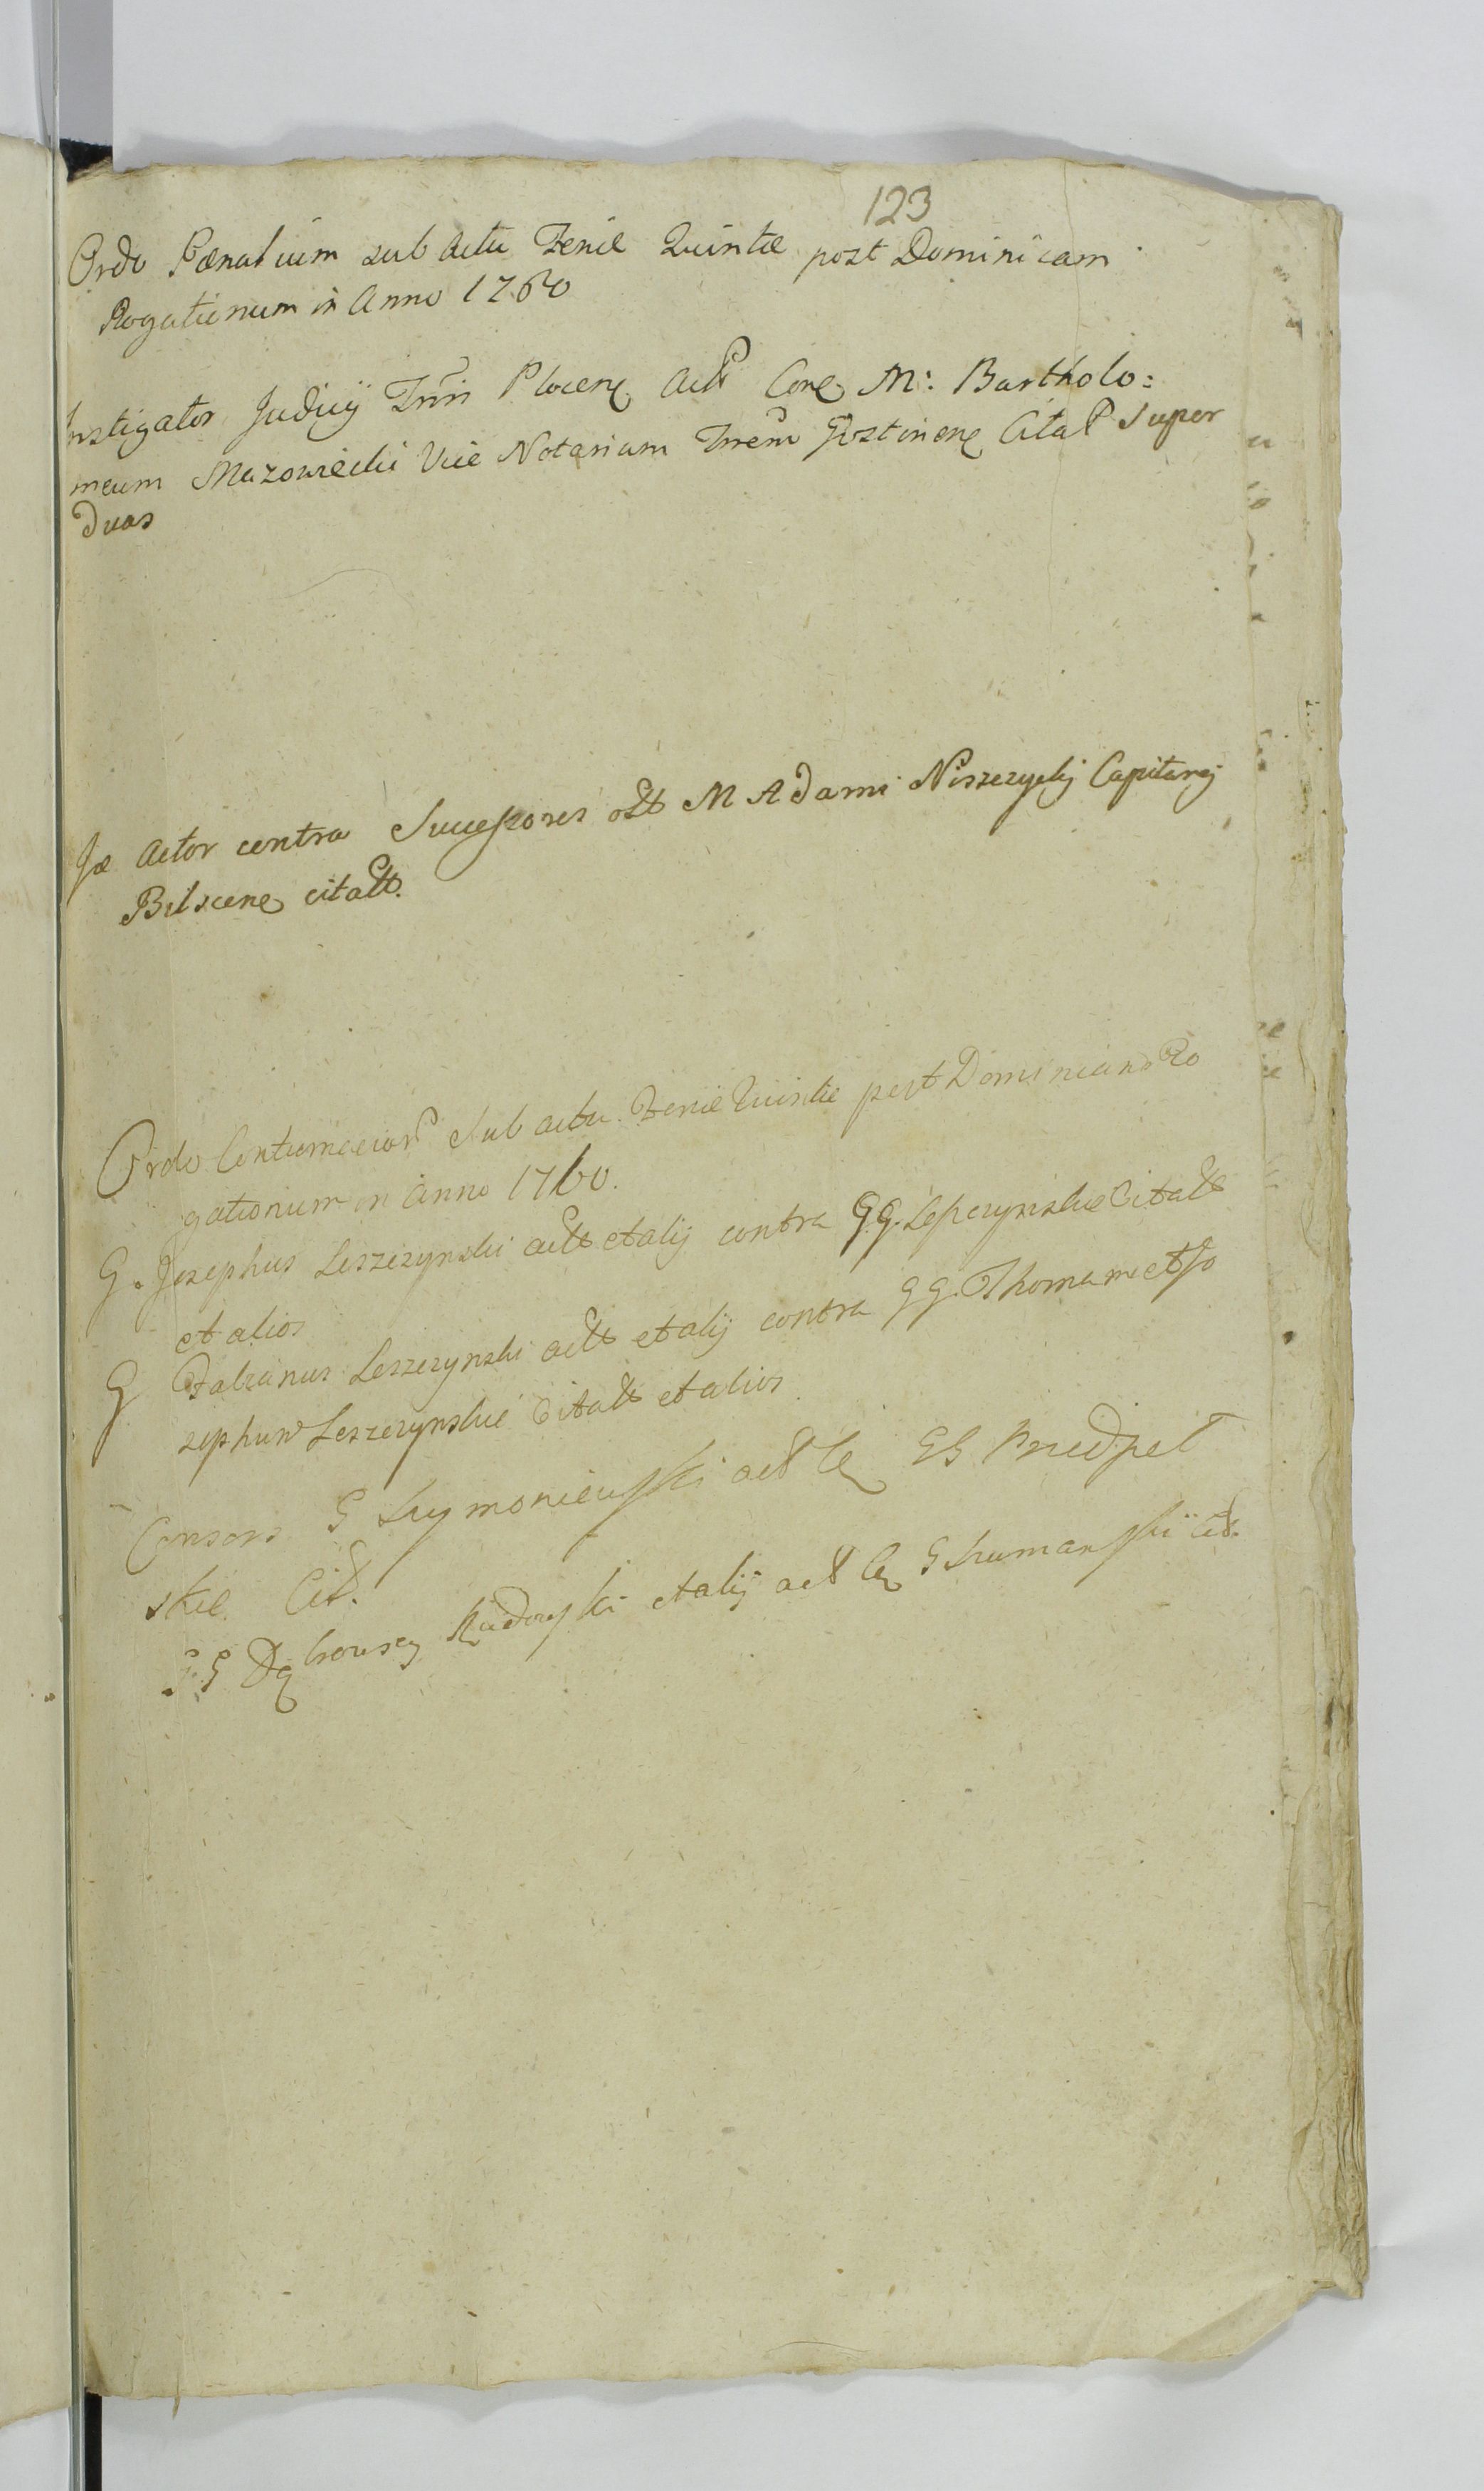 123
Ordo Pœnalium sub actu Feriæ Quintæ post Dominicam
Rogationum in Anno 1760
Instigator Judicij Trris Plocen Act Con M: Bartholo:
meum Mazowiecki Vice Notarium Trrem Gostinen Citat Super
duas
Actor contra Successores olt M Adami Niszczycki Capitanej
Bilscen citatt.
Ordo Contumaciar Sub actu Feriæ Quintæ post Dominicam Ro
gationum in Anno 1760.
G. Josephus Leszczynski actt et alij contra GG. Leszczynskie Citatt
et alios
G Fabianus Leszczynski actt et alij contra GG. Thomam et Jo
sephum Leszczynskie Citatt et alios
Consors G Szymoniewski act GG
skie Cit.
GG et alij act G Szumanski Cit.